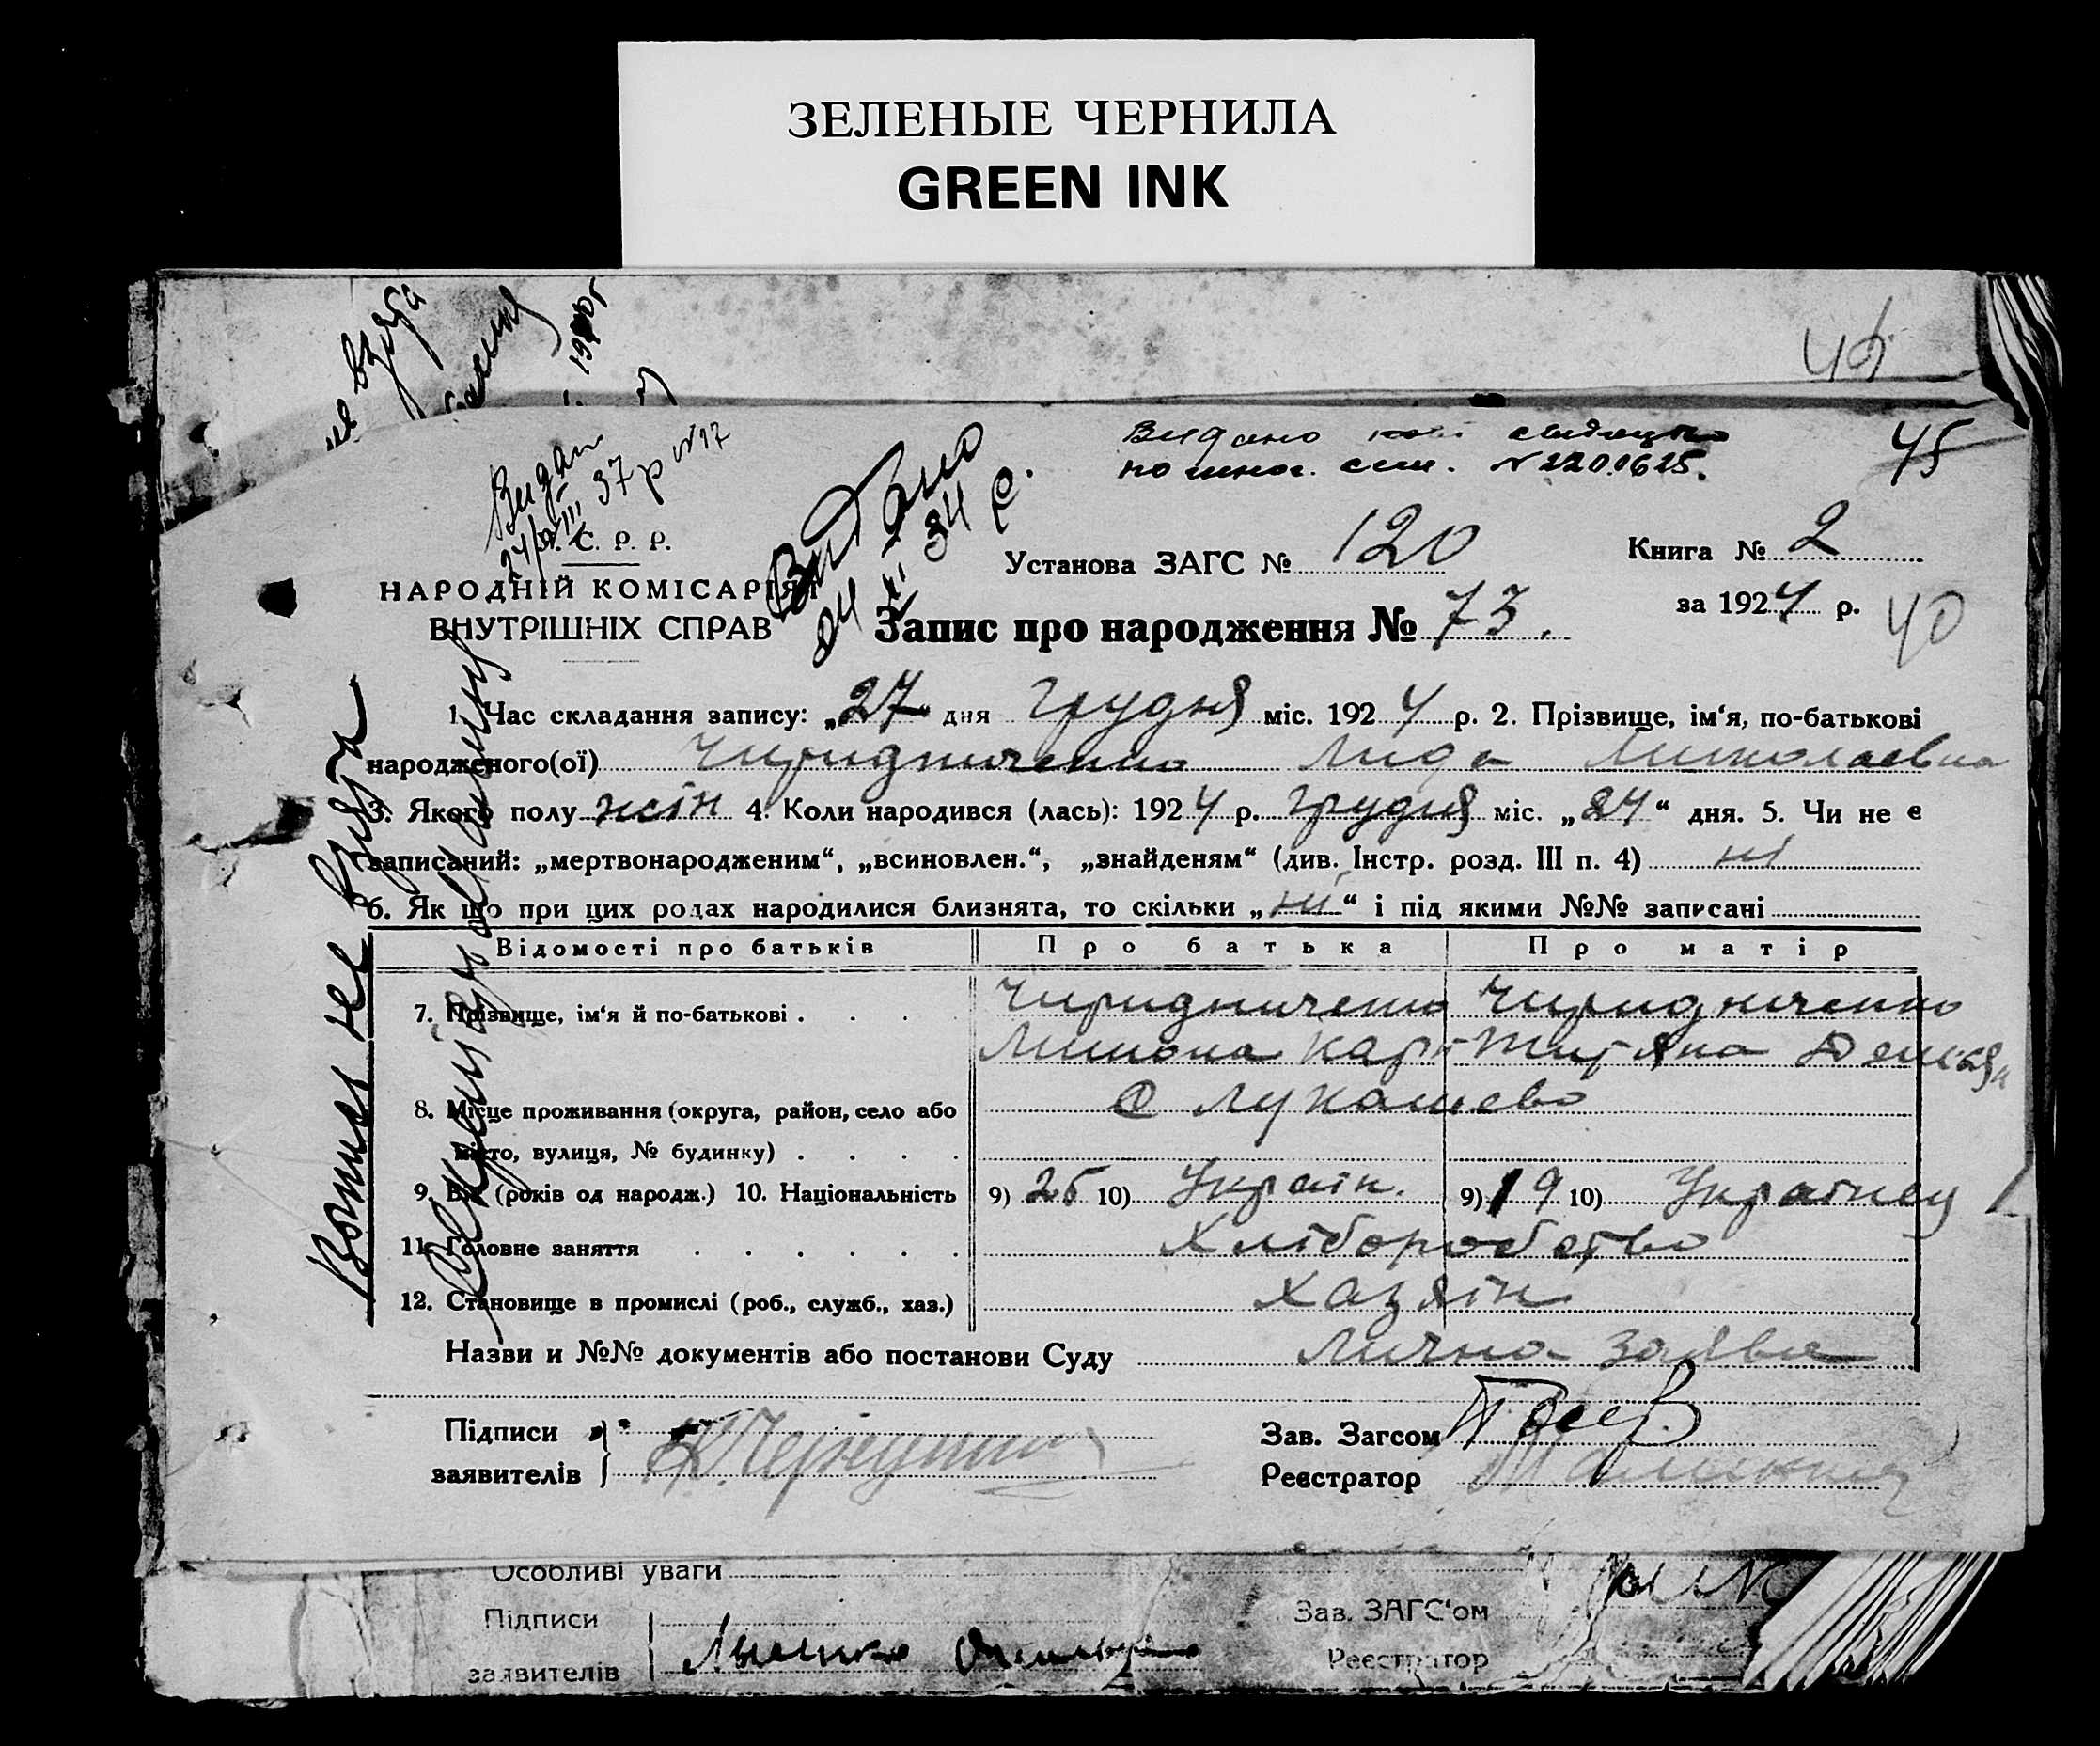 ЗЕЛЕНЫЕ ЧЕРНИЛА
GREEN INK
не взята
46
45
Видано нові
по множ. N 2200625.
Видан
37 р N 17
Видано
24 XI 34 р.
С. Р. Р.
НАРОДНІЙ КОМІСАРІЯТ
ВНУТРІШНІХ СПРАВ
Установа ЗАГС № 120
Книга № 2
за 1924 р.
40
Запис про народження № 73.
1. Час складання запису: „27 дня грудня міс. 1924 р. 2. Прізвище, ім‘я, по-батькові
народженого(ої) Чиридниченко Лида Миколаевна
3. Якого полу жін 4. Коли народився (лась): 1924 р. грудня міс. „24“ дня. 5. Чи не є
записаний: „мертвонародженим“, „всиновлен.“, „знайденям“ (див. Інстр. розд. III п. 4) ні
6. Як що при цих родах народилися близнята, то скільки „ні“ і під якими №№ записані
Відомості про батьків Про батька Про матір
7. Прізвище, ім‘я й по-батькові . . . . Чиридниченко Чиридниченко
8. Місце проживання (округа, район, село або с Лукашево
місто, вулиця, № будинку) . . . .
9. Вік (років од народж.) 10. Національність 9) 25 10) Україн. 9) 19 10) Українец
11. Головне заняття . . . . . . Хліборобство
12. Становище в промислі (роб., служб., хаз.) хазяїн
Назви и №№ документів або постанови Суду Лична заява
Підписи
заявителів
Зав. Загсом
Реєстратор
не взята
Особливі уваги
Підписи
заявителів
Зав. ЗАГС‘ом
Реєстратор